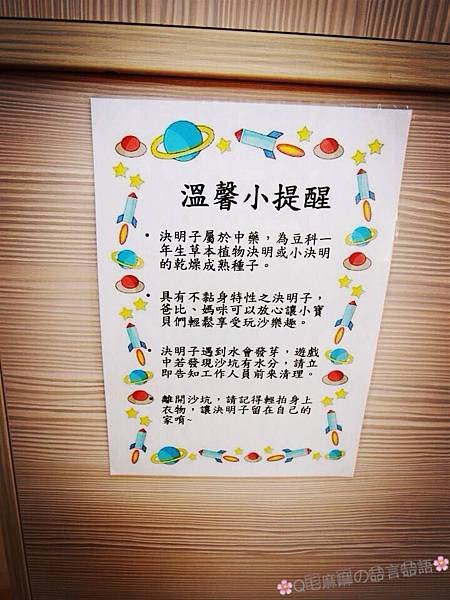 溫馨小提醒
• 決明子屬於中藥，為豆科一
年生草本植物決明或小決明
的乾燥成熟種子。
• 具有不黏身特性之決明子，
爸比、媽咪可以放心讓小寶
貝們輕鬆享受玩沙樂趣。
• 決明子遇到水會發芽，遊戲
中若發現沙坑有水分，請立
即告知工作人員前來清理。
• 離開沙坑，請記得輕拍身上
衣物，讓決明子留在自己的
家唷~
Q毛麻麻の喆言喆語